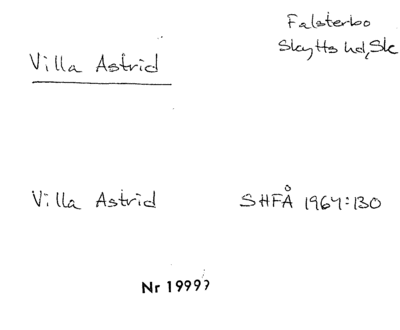 Falsterbo
Skytts hd, Sk
Villa Astrid
Villa Astrid SHFÅ 1967:130
Nr 19999